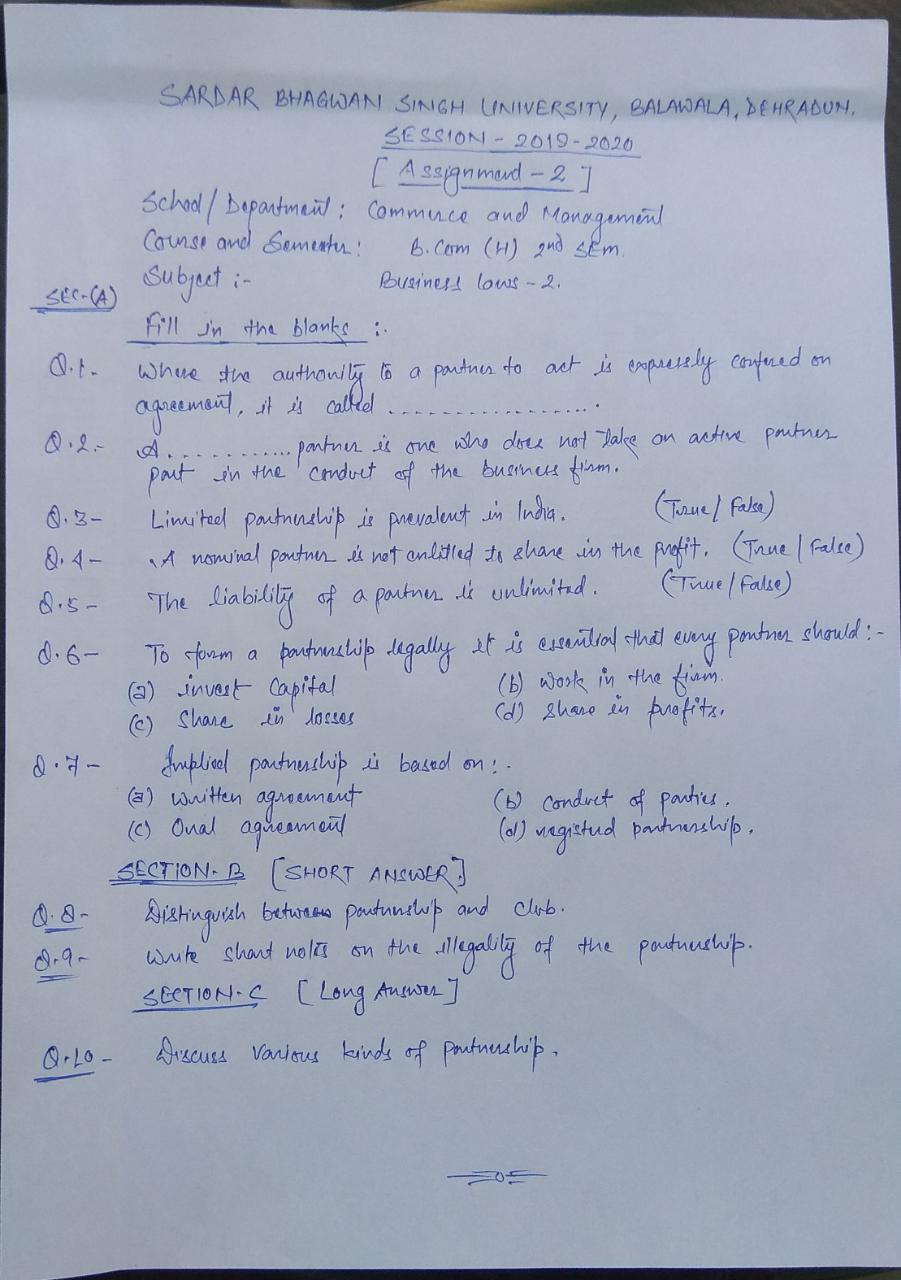 SARDAR BHAGWAN SINGH UNIVERSITY, BALAWALA, DEHRADUN.
SESSION - 2019-2020
[ Assignment - 2 ]
School/ Department : Commerce and Management
Course and Semester : B.Com (H) 2nd SEm.
Subject :- Business laws - 2.
SEC-(A)
Fill in the blanks :-
Q.1- Where the authority to a partner to act is expressly confered on
agreement, it is called ..................
Q.2- A ........... partner is one who does not take an active partner
part in the conduct of the business firm.
Q.3- Limited partnership is prevalent in India. (True/ False)
Q.4- A nominal partner is not entitled to share in the profit. (True | False)
Q.5- The liability of a partner is unlimited. (True/False)
Q.6- To form a partnership legally it is essential that every partner should :-
(a) invest Capital (b) work in the firm.
(c) Share in losses (d) Share in profits.
Q.7- Implied partnership is based on :-
(a) written agreement (b) conduct of parties.
(c) Oral agreement (d) registred partnership.
SECTION-B [SHORT ANSWER]
Q.8- Distinguish between partnership and club.
Q.9- Write short notes on the illegality of the partnership.
SECTION-C [Long Answer]
Q.10- Discuss various kinds of partnership.